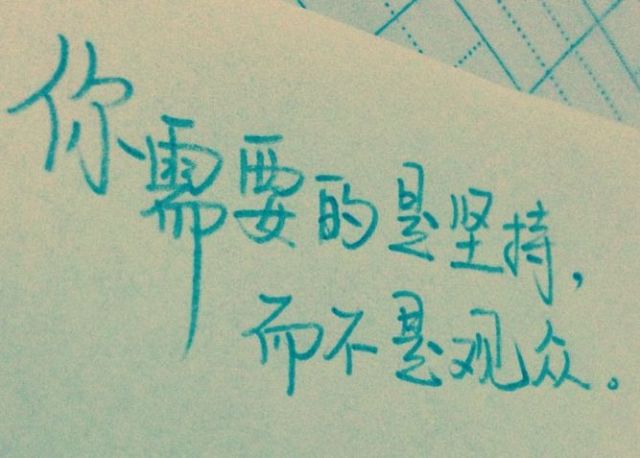 你需要的是坚持,
而不是观众。